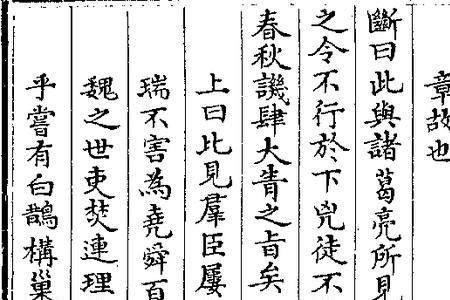 章故也
斷曰此與諸葛亮所見
之令不行於下兇徒不
春秋譏肆大眚之旨矣
上曰此見羣臣屢
瑞不害為堯舜百
魏之世吏焚連理
乎嘗有白鵲構巢